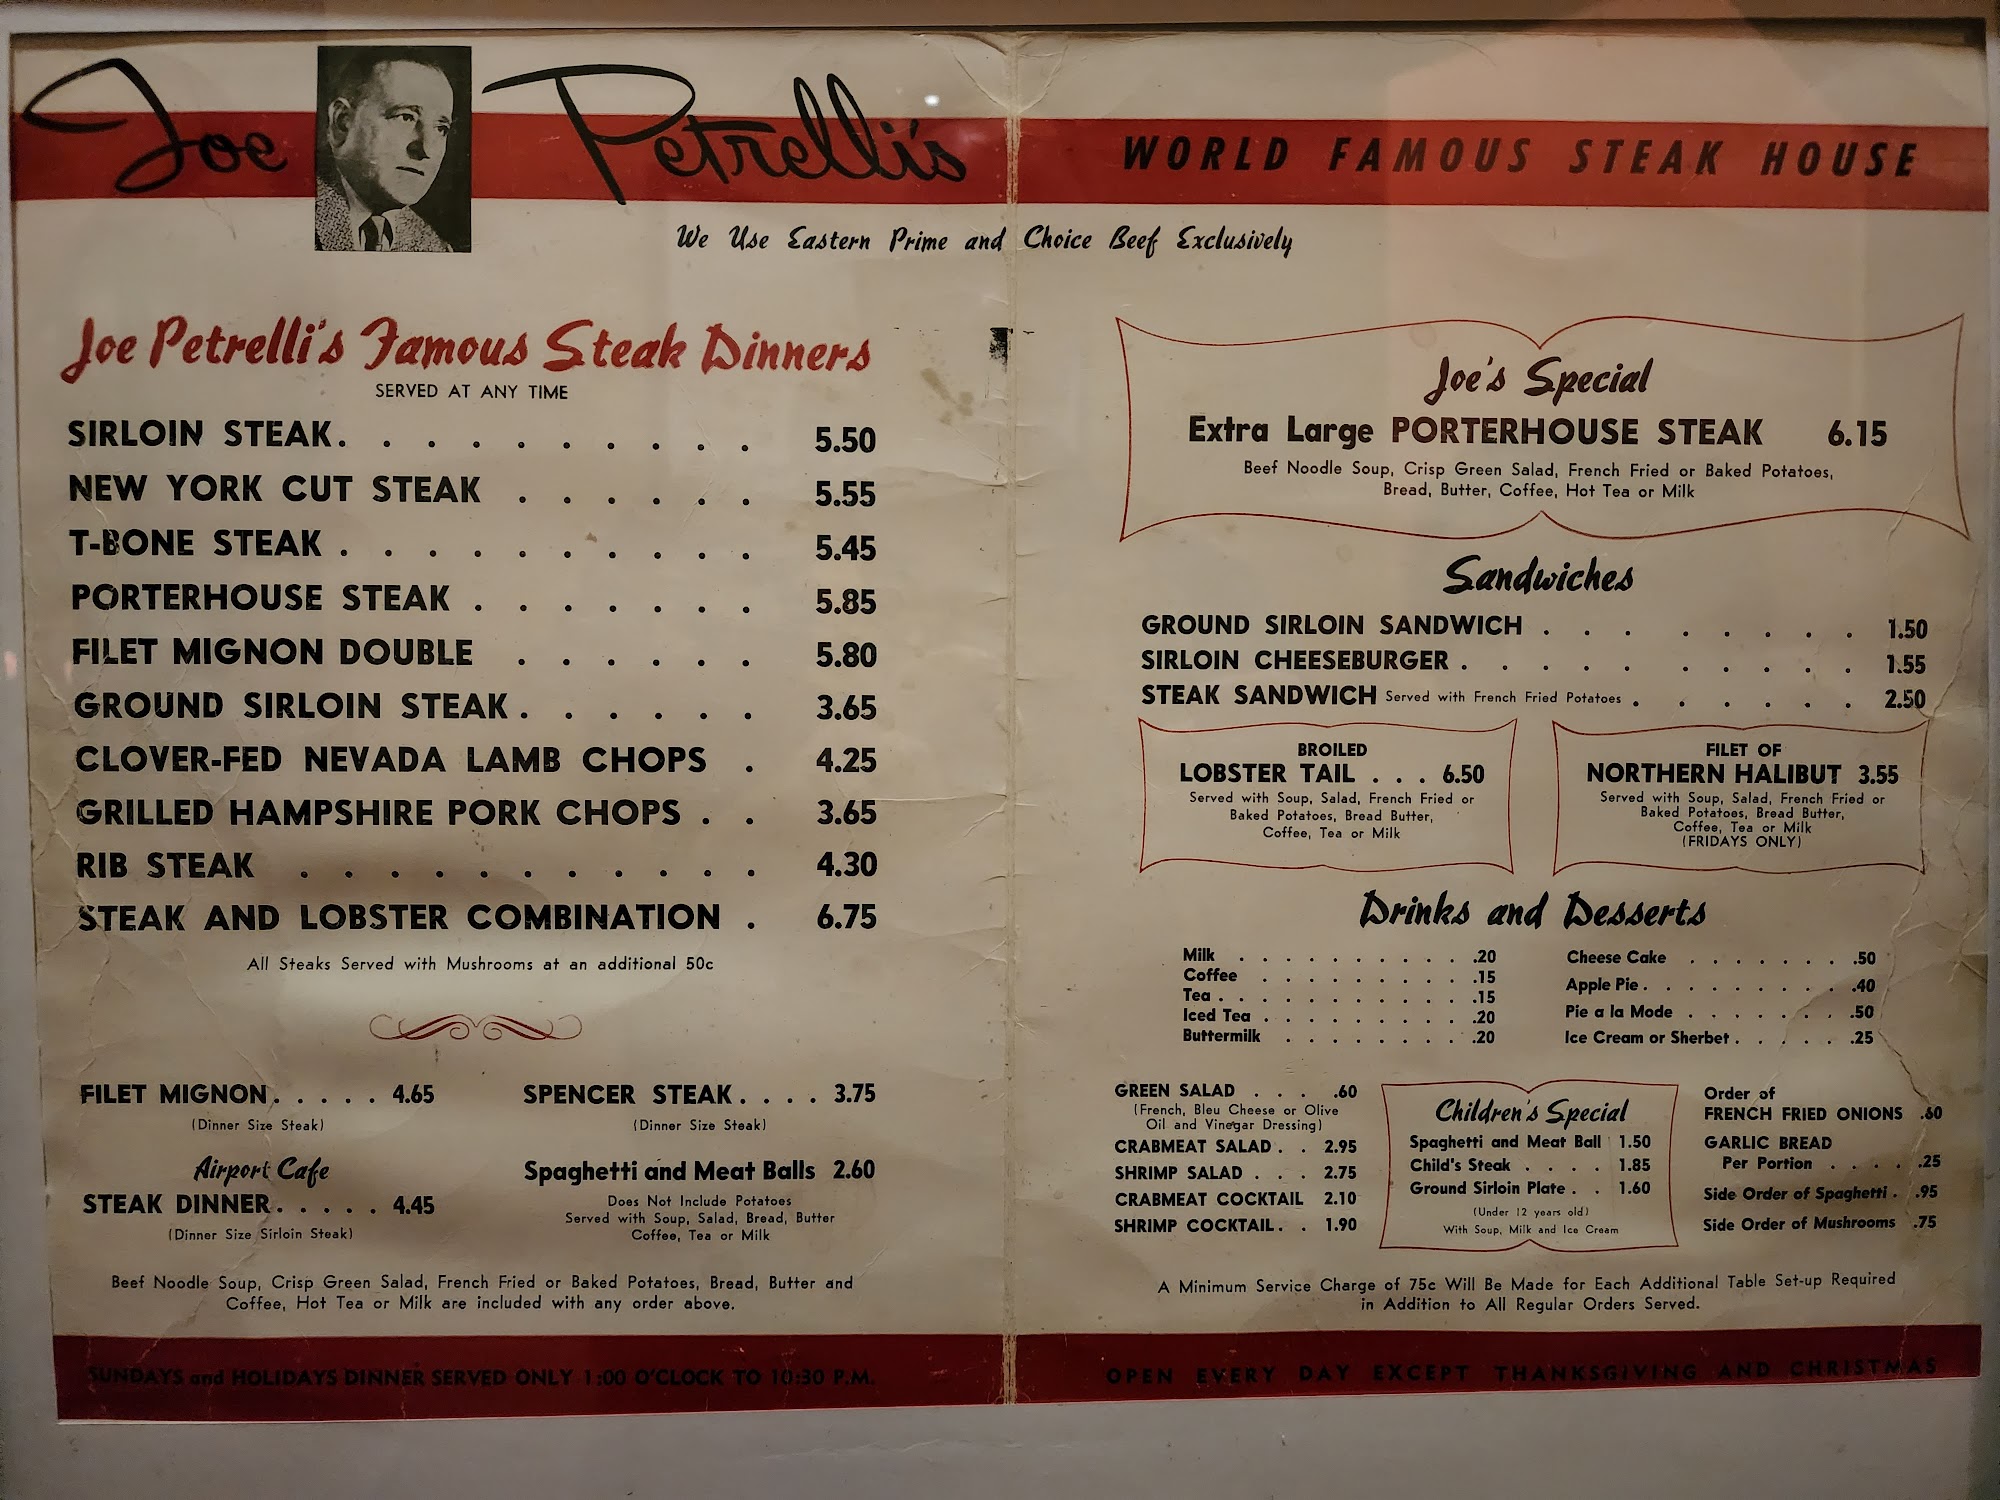 Joe Petrelli's
WORLD FAMOUS STEAK HOUSE
We Use Eastern Prime and Choice Beef Exclusively
Joe Petrelli's Famous Steak Dinners
SERVED AT ANY TIME
SIRLOIN STEAK. . . . . . . . 5.50
NEW YORK CUT STEAK . . . . . 5.55
T-BONE STEAK . . . . . . . . 5.45
PORTERHOUSE STEAK . . . . . . 5.85
FILET MIGNON DOUBLE . . . . . 5.80
GROUND SIRLOIN STEAK. . . . . 3.65
CLOVER-FED NEVADA LAMB CHOPS . 4.25
GRILLED HAMPSHIRE PORK CHOPS . . 3.65
RIB STEAK . . . . . . . . . 4.30
STEAK AND LOBSTER COMBINATION . 6.75
All Steaks Served with Mushrooms at an additional 50c
FILET MIGNON. . . . . 4.65
(Dinner Size Steak)
Airport Cafe
STEAK DINNER. . . . . 4.45
(Dinner Size Sirloin Steak)
SPENCER STEAK. . . . 3.75
(Dinner Size Steak)
Spaghetti and Meat Balls 2.60
Does Not Include Potatoes
Served with Soup, Salad, Bread, Butter
Coffee, Tea or Milk
Beef Noodle Soup, Crisp Green Salad, French Fried or Baked Potatoes, Bread, Butter and
Coffee, Hot Tea or Milk are included with any order above.
SUNDAYS and HOLIDAYS DINNER SERVED ONLY 1:00 O'CLOCK TO 10:30 P.M.
Joe's Special
Extra Large PORTERHOUSE STEAK 6.15
Beef Noodle Soup, Crisp Green Salad, French Fried or Baked Potatoes,
Bread, Butter, Coffee, Hot Tea or Milk
Sandwiches
GROUND SIRLOIN SANDWICH . . . . . . . . 1.50
SIRLOIN CHEESEBURGER . . . . . . . . . 1.55
STEAK SANDWICH Served with French Fried Potatoes . . . . . . 2.50
BROILED
LOBSTER TAIL . . . 6.50
Served with Soup, Salad, French Fried or
Baked Potatoes, Bread Butter,
Coffee, Tea or Milk
FILET OF
NORTHERN HALIBUT 3.55
Served with Soup, Salad, French Fried or
Baked Potatoes, Bread Butter,
Coffee, Tea or Milk
(FRIDAYS ONLY)
Drinks and Desserts
Milk . . . . . . . . . . .20
Coffee . . . . . . . . . .15
Tea . . . . . . . . . . . .15
Iced Tea . . . . . . . . . .20
Buttermilk . . . . . . . . .20
Cheese Cake . . . . . . . .50
Apple Pie . . . . . . . . .40
Pie a la Mode . . . . . . .50
Ice Cream or Sherbet . . . . .25
GREEN SALAD . . . .60
(French, Bleu Cheese or Olive
Oil and Vinegar Dressing)
CRABMEAT SALAD . . 2.95
SHRIMP SALAD . . . 2.75
CRABMEAT COCKTAIL 2.10
SHRIMP COCKTAIL . . 1.90
Children's Special
Spaghetti and Meat Ball 1.50
Child's Steak . . . . 1.85
Ground Sirloin Plate . . 1.60
(Under 12 years old)
With Soup, Milk and Ice Cream
Order of
FRENCH FRIED ONIONS .60
GARLIC BREAD
Per Portion . . . . .25
Side Order of Spaghetti . .95
Side Order of Mushrooms .75
A Minimum Service Charge of 75c Will Be Made for Each Additional Table Set-up Required
in Addition to All Regular Orders Served.
OPEN EVERY DAY EXCEPT THANKSGIVING AND CHRISTMAS